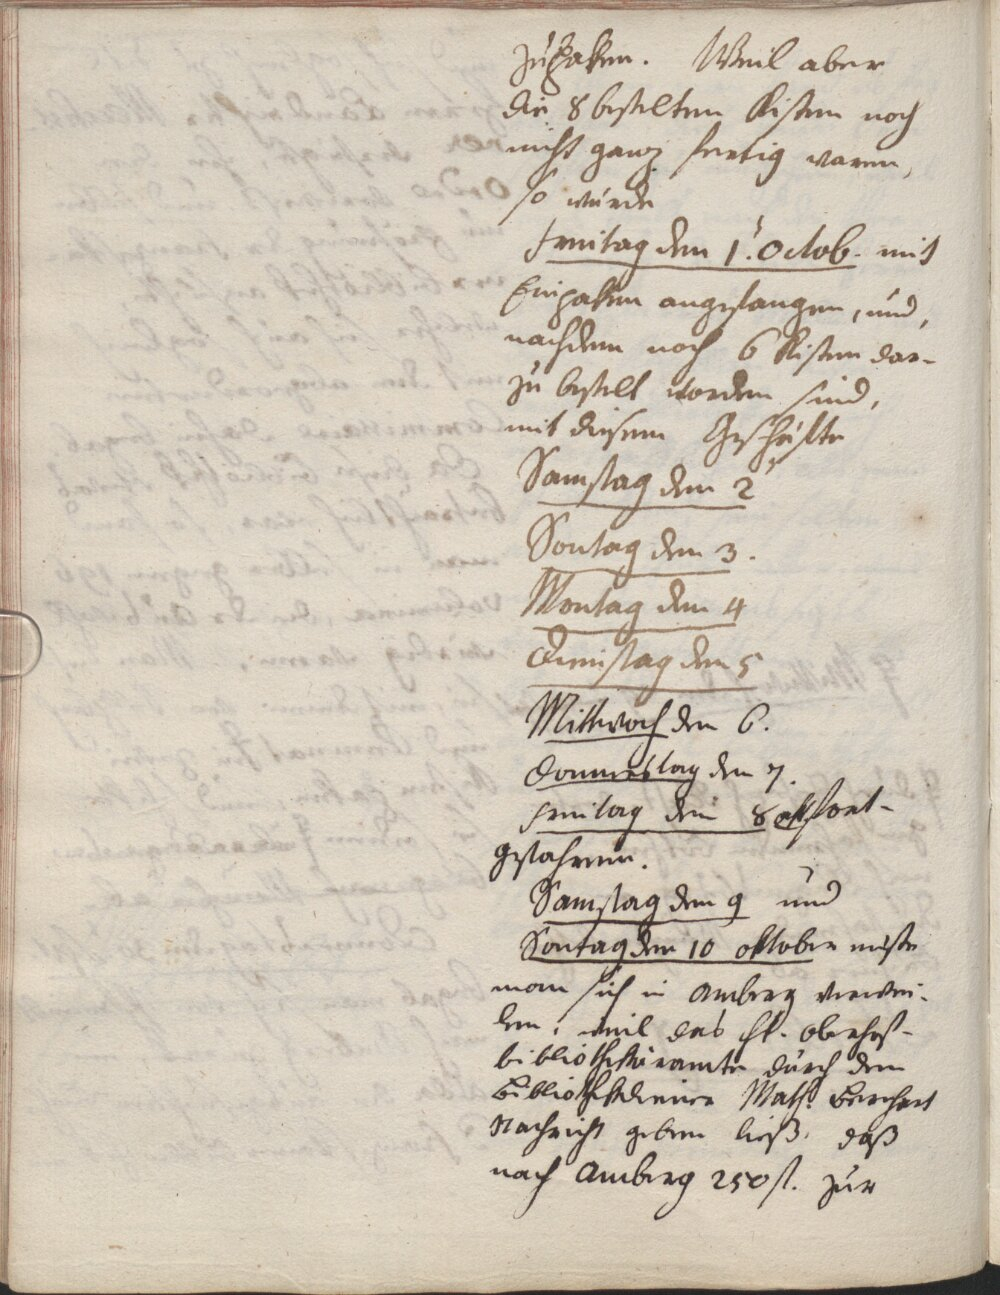 zupaken. Weil aber
die 8 bestelten Kisten noch
nicht ganz fertig waren,
so wurde
Freitag den 1. Octob. mit
Einpaken angefangen, und,
nachdem noch 6 Kisten dar-
zu bestelt worden sind,
mit diesem Geschäfte
Samstag den 2
Sontag den 3.
Montag den 4
Dienstag den 5
Mittwoch den 6.
Donnerstag den 7.
Freitag den 8 okt fort-
gefahren.
Samstag den 9 und
Sontag den 10 oktober muste
man sich in Amberg verwei-
len, weil das oberhof-
bibliothekäramte durch den
Bibliothekdiener Math.
Nachricht geben ließ, daß
nach Amberg 250 f. zur